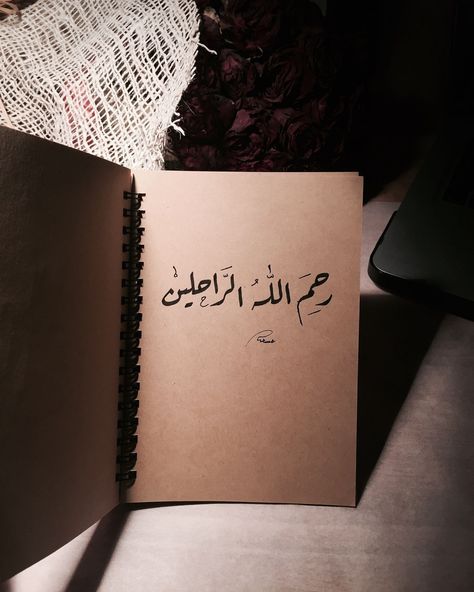 رَحِمَ اللهُ الرَّاحلين